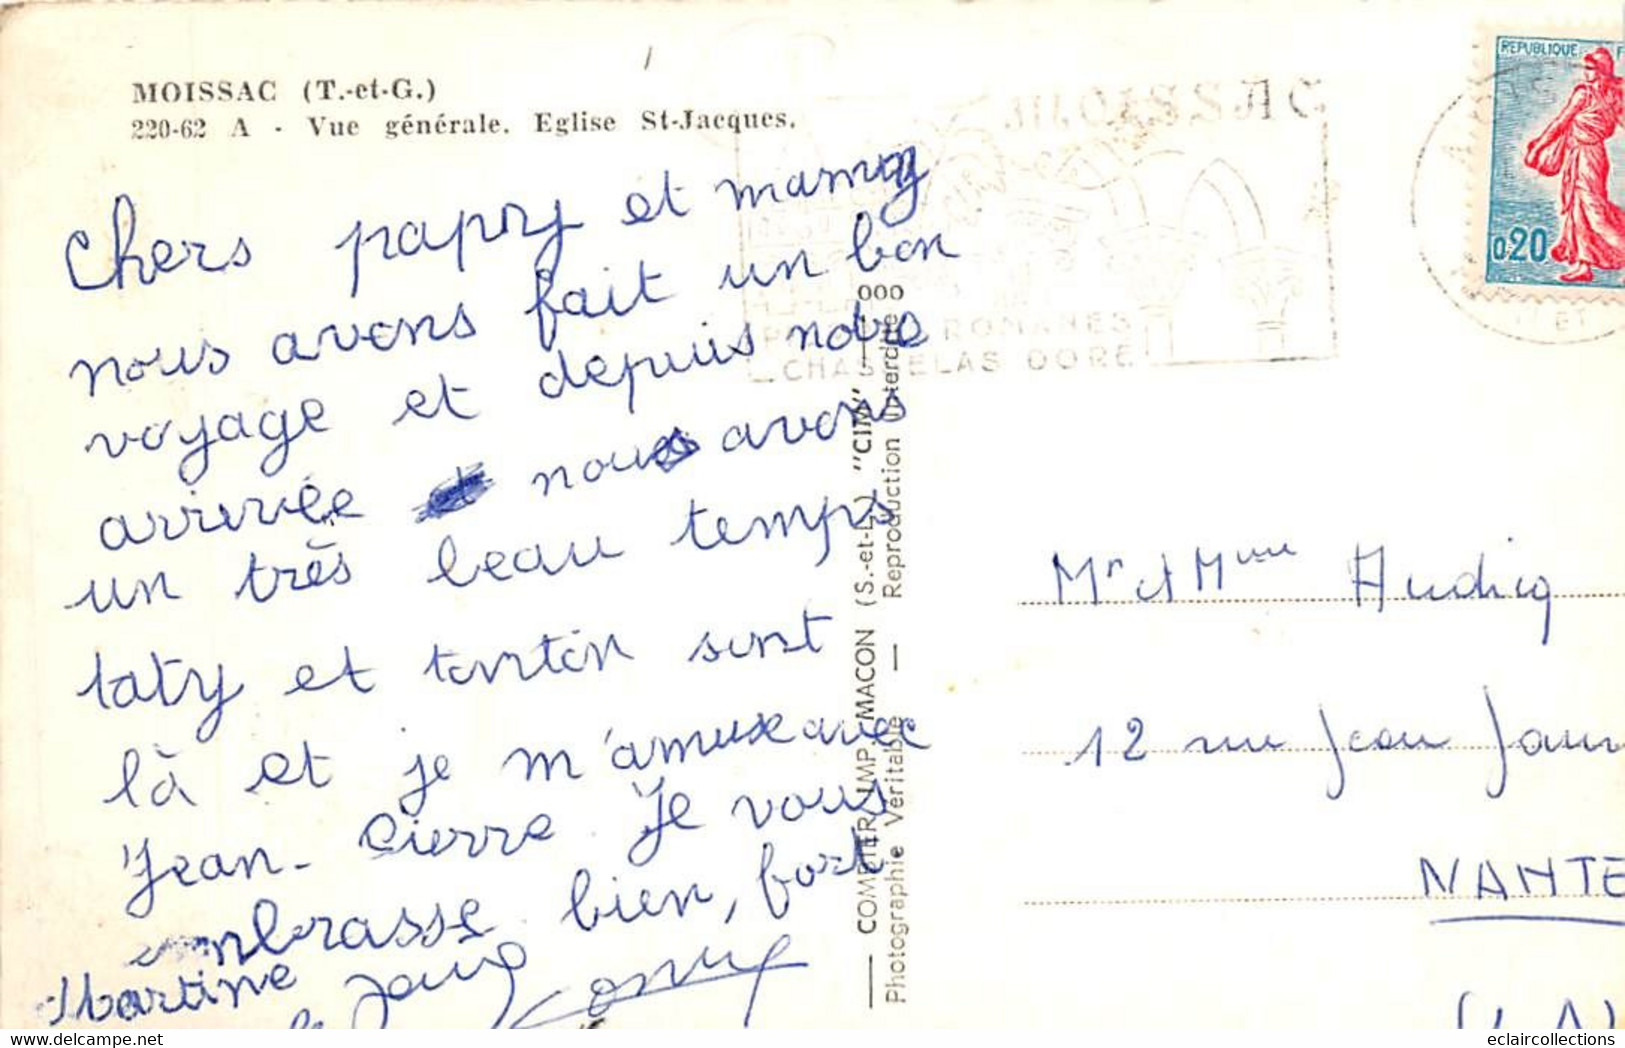 MOISSAC (T.-et-G.)
220-62 A - Vue générale. Eglise St-Jacques.
Chers papy et mamy
nous avons fait un bon
voyage et depuis notre
arrivée nous avons
un très beau temps
taty et tonton sont
là et je m'amuse avec
Jean-Pierre. Je vous
embrasse bien, fort.
Martine
MOISSAC
ROMANES
CHASSELAS DORE
REPUBLIQUE F
0,20
COMBIER IMP. MACON (S.-et-L.) "CIM"
Photographie Véritable — Reproduction interdite
Mr et Mme Audicq
12 rue Jean Jaur
NANTE
eclaircollections